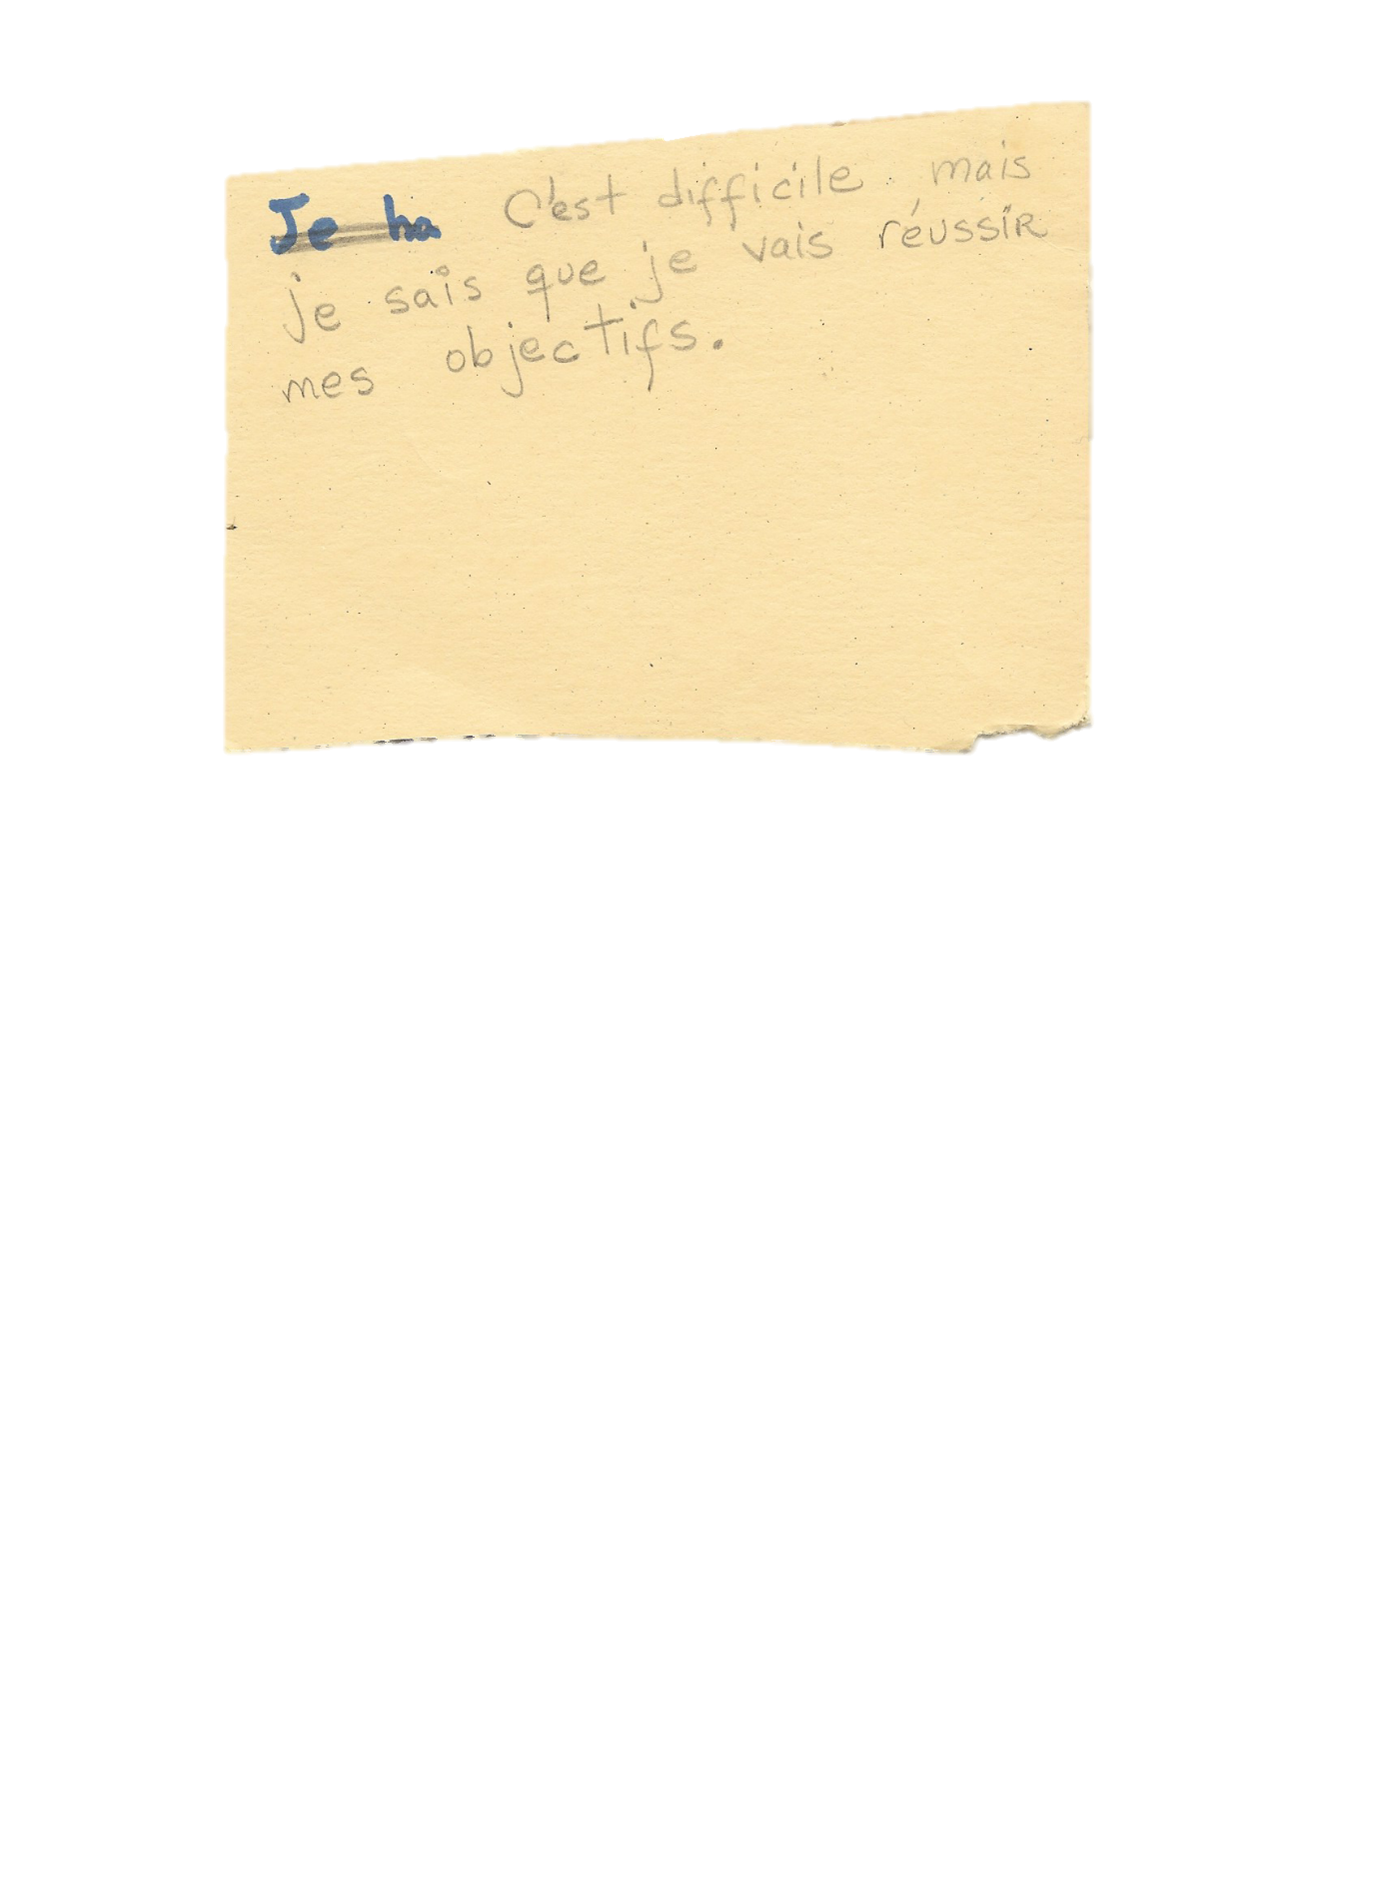 Je ha C'est difficile mais
je sais que je vais réussir
mes objectifs.